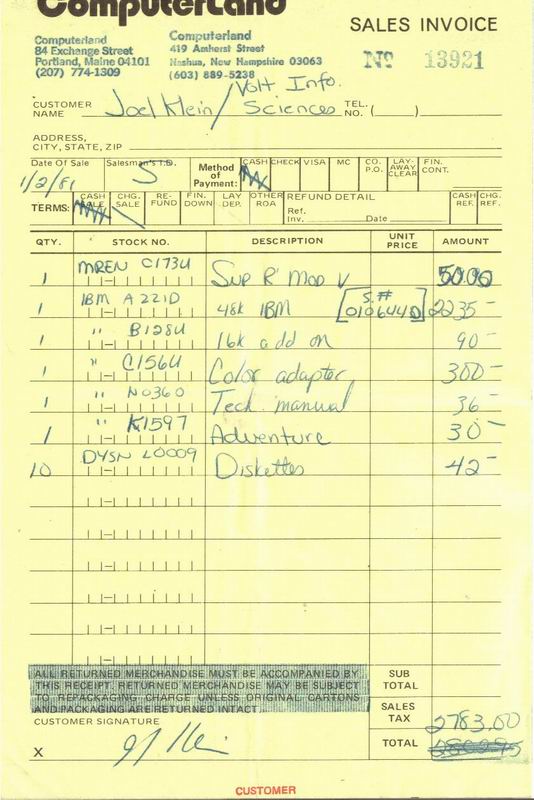 ComputerLand
SALES INVOICE
Computerland
84 Exchange Street
Portland, Maine 04101
(207) 774-1309
Computerland
419 Amherst Street
Nashua, New Hampshire 03063
(603) 889-5238
No 13921
CUSTOMER NAME Joel Klein / Volt Info. Sciences TEL. NO. ( )
ADDRESS, CITY, STATE, ZIP
Date Of Sale 1/2/81 Salesman's I.D. S Method of Payment: CASH CHECK VISA MC CO. P.O. LAY-AWAY CLEAR FIN. CONT.
TERMS: CASH SALE CHG. SALE RE-FUND FIN. DOWN LAY DEP. OTHER ROA REFUND DETAIL Ref. Inv. Date CASH REF. CHG. REF.
QTY. STOCK NO. DESCRIPTION UNIT PRICE AMOUNT
1 MREN C173U Sup R' Mod V 50.00
1 IBM A221D 48k IBM [S.# 0106440] 2235-
1 " B128U 16k add on 90-
1 " C156U Color adapter 300-
1 " N0360 Tech. manual 36-
1 " K1597 Adventure 30-
10 DYSN L0009 Diskettes 42-
ALL RETURNED MERCHANDISE MUST BE ACCOMPANIED BY
THIS RECEIPT. RETURNED MERCHANDISE MAY BE SUBJECT
TO REPACKAGING CHARGE UNLESS ORIGINAL CARTONS
AND PACKAGING ARE RETURNED INTACT.
SUB TOTAL
SALES TAX 2783.00
CUSTOMER SIGNATURE
X
TOTAL
CUSTOMER